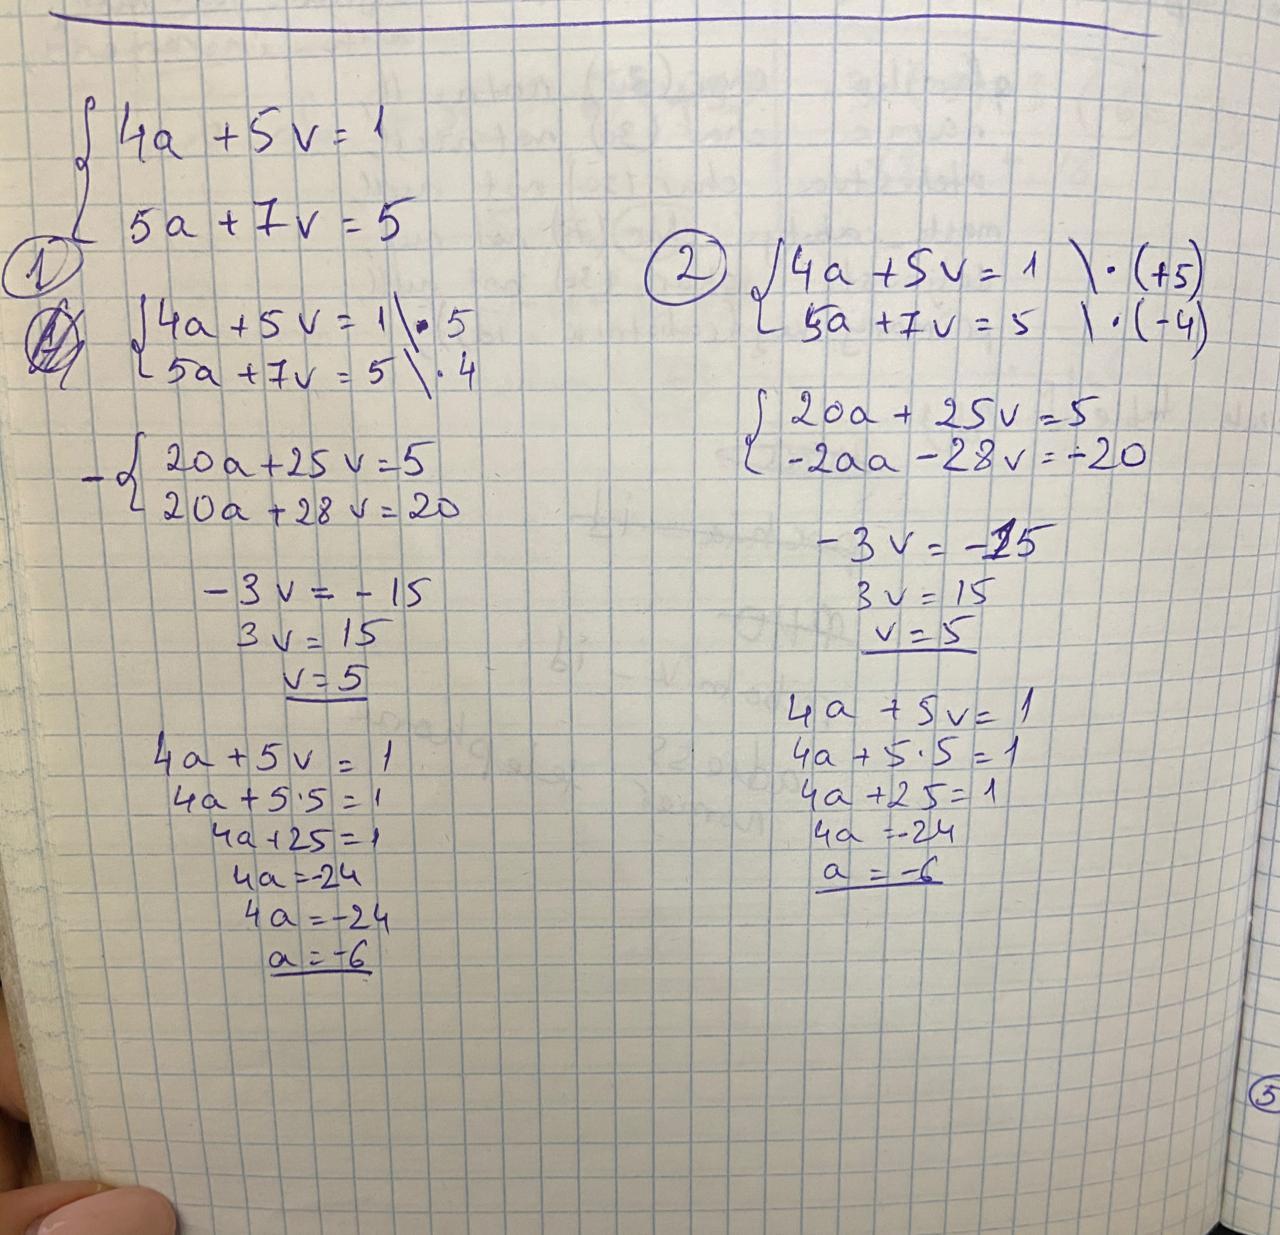 4a + 5v = 1
5a + 7v = 5
1
4a + 5v = 1 \ · 5
5a + 7v = 5 \ · 4
- 20a + 25v = 5
20a + 28v = 20
- 3v = - 15
3v = 15
v = 5
4a + 5v = 1
4a + 5·5 = 1
4a + 25 = 1
4a = -24
4a = -24
a = -6
2
4a + 5v = 1 \ · (+5)
5a + 7v = 5 \ · (-4)
20a + 25v = 5
-2aa - 28v = -20
- 3v = -15
3v = 15
v = 5
4a + 5v = 1
4a + 5·5 = 1
4a + 25 = 1
4a = -24
a = -6
5